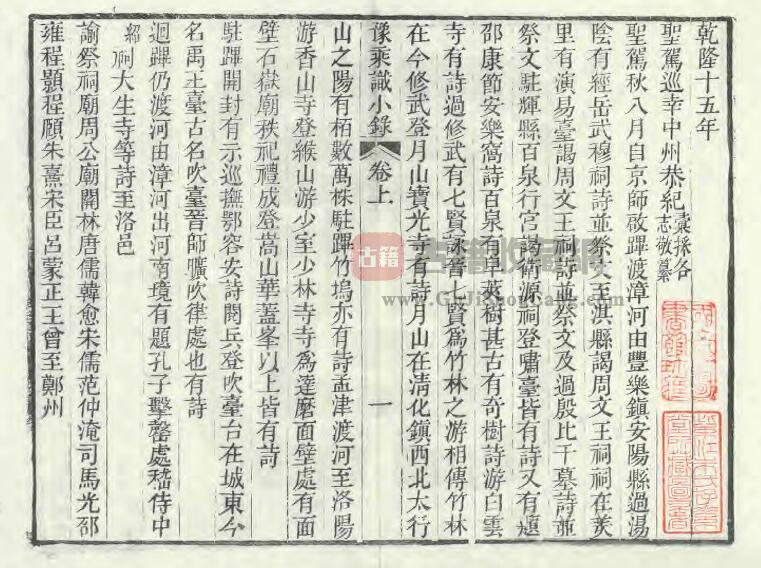 乾隆十五年
聖駕巡幸中州恭紀彙採各志敬纂
聖駕秋八月自京師啟蹕渡漳河由豐樂鎮安陽縣過湯
陰有經岳武穆祠詩並祭文至淇縣謁周文王祠祠在羑
里有演易臺謁周文王祠詩並祭文及過殷比干墓詩並
祭文駐輝縣百泉行宮謁衛源祠登嘯臺皆有詩又有題
邵康節安樂窩詩百泉有皁莢樹甚古有奇樹詩游白雲
寺有詩過修武有七賢詠晉七賢為竹林之游相傳竹林
在今修武登月山寶光寺有詩月山在清化鎮西北太行
豫乘識小錄 卷上 一
山之陽有栢數萬株駐蹕竹塢亦有詩孟津渡河至洛陽
游香山寺登緱山游少室少林寺寺為達磨面壁處有面
壁石嶽廟秩祀禮成登嵩山華蓋峯以上皆有詩
駐蹕開封有示巡撫鄂容安詩閱兵登吹臺台在城東今
名禹王臺古名吹臺晉師曠吹律處也有詩
迴蹕仍渡河由漳河出河南境有題孔子擊磬處嵇侍中
紹祠大生寺等詩至洛邑
諭祭祠廟周公廟關林唐儒韓愈朱儒范仲淹司馬光邵
雍程顥程頤朱熹宋臣呂蒙正王曾至鄭州
古籍
www.GuJiShouCang.com